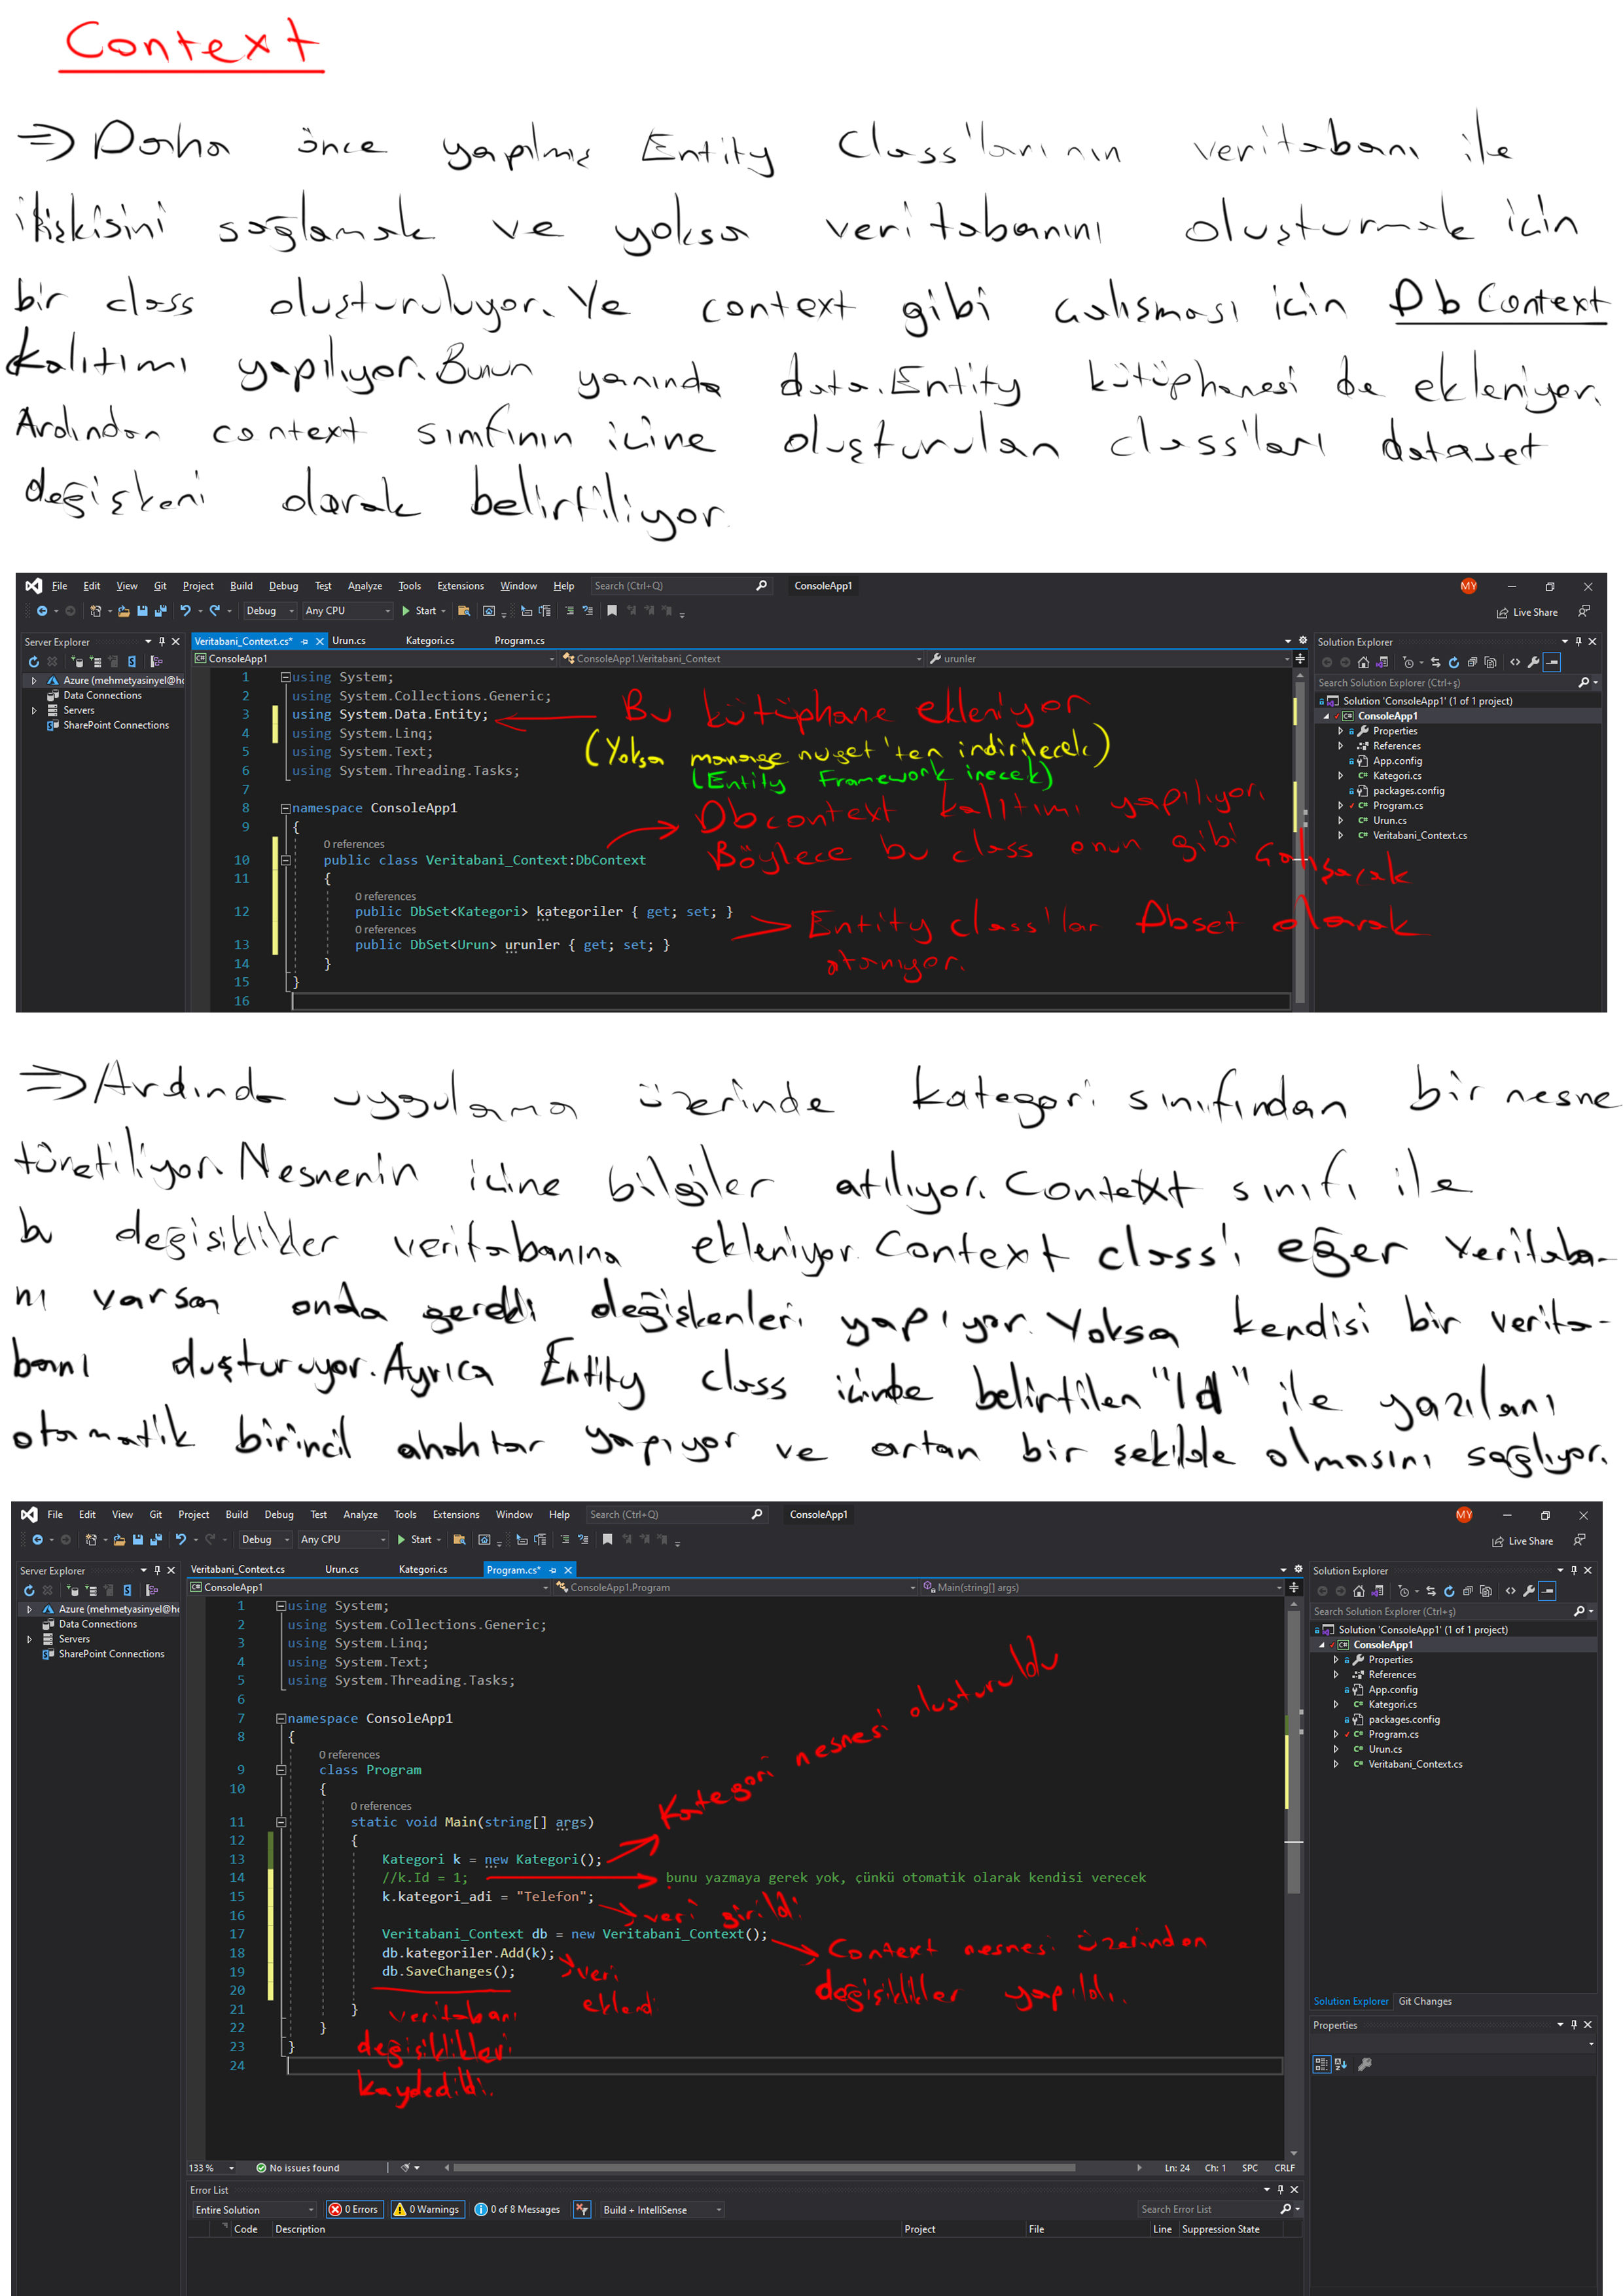 Context
⇒ Daha önce yapılmış Entity Class'larının veritabanı ile
ilişkisini sağlamak ve yoksa veritabanını oluşturmak için
bir class oluşturuluyor. Ve context gibi çalışması için DbContext
kalıtımı yapılıyor. Bunun yanında data.Entity kütüphanesi de ekleniyor.
Ardından context sınıfının içine oluşturulan class'ları dataset
değişkeni olarak belirtiliyor.
File Edit View Git Project Build Debug Test Analyze Tools Extensions Window Help Search (Ctrl+Q) ConsoleApp1 MY
Debug Any CPU Start Live Share
Server Explorer
Azure (mehmetyasinyel@ho
Data Connections
Servers
SharePoint Connections
Veritabani_Context.cs* Urun.cs Kategori.cs Program.cs
ConsoleApp1 ConsoleApp1.Veritabani_Context urunler
1 using System;
2 using System.Collections.Generic;
3 using System.Data.Entity;
4 using System.Linq;
5 using System.Text;
6 using System.Threading.Tasks;
7
8 namespace ConsoleApp1
9 {
0 references
10 public class Veritabani_Context:DbContext
11 {
0 references
12 public DbSet<Kategori> kategoriler { get; set; }
0 references
13 public DbSet<Urun> urunler { get; set; }
14 }
15 }
16
Bu kütüphane ekleniyor
(Yoksa manage nuget'ten indirilecek)
(Entity Framework inecek)
Dbcontext kalıtımı yapılıyor.
Böylece bu class onun gibi çalışacak
Entity class'lar Dbset olarak
atanıyor.
Solution Explorer
Search Solution Explorer (Ctrl+ş)
Solution 'ConsoleApp1' (1 of 1 project)
ConsoleApp1
Properties
References
App.config
Kategori.cs
packages.config
Program.cs
Urun.cs
Veritabani_Context.cs
⇒ Ardında uygulama üzerinde kategori sınıfından bir nesne
türetiliyor. Nesnenin içine bilgiler atılıyor. Context sınıfı ile
bu değişiklikler veritabanına ekleniyor. Context class'ı eğer veritaba-
nı varsa onda gerekli değişkenleri yapıyor. Yoksa kendisi bir verita-
banı oluşturuyor. Ayrıca Entity class içinde belirtilen "Id" ile yazılanı
otomatik birincil anahtar yapıyor ve artan bir şekilde olmasını sağlıyor.
File Edit View Git Project Build Debug Test Analyze Tools Extensions Window Help Search (Ctrl+Q) ConsoleApp1 MY
Debug Any CPU Start Live Share
Server Explorer
Azure (mehmetyasinyel@ho
Data Connections
Servers
SharePoint Connections
Veritabani_Context.cs Urun.cs Kategori.cs Program.cs*
ConsoleApp1 ConsoleApp1.Program Main(string[] args)
1 using System;
2 using System.Collections.Generic;
3 using System.Linq;
4 using System.Text;
5 using System.Threading.Tasks;
6
7 namespace ConsoleApp1
8 {
0 references
9 class Program
10 {
0 references
11 static void Main(string[] args)
12 {
13 Kategori k = new Kategori();
14 //k.Id = 1; bunu yazmaya gerek yok, çünkü otomatik olarak kendisi verecek
15 k.kategori_adi = "Telefon";
16
17 Veritabani_Context db = new Veritabani_Context();
18 db.kategoriler.Add(k);
19 db.SaveChanges();
20
21 }
22 }
23 }
24
Kategori nesnesi oluşturuldu
veri girildi
Context nesnesi üzerinden
değişiklikler yapıldı.
veri
eklendi
veritabanı
değişiklikleri
kaydedildi.
Solution Explorer
Search Solution Explorer (Ctrl+ş)
Solution 'ConsoleApp1' (1 of 1 project)
ConsoleApp1
Properties
References
App.config
Kategori.cs
packages.config
Program.cs
Urun.cs
Veritabani_Context.cs
Solution Explorer Git Changes
Properties
133 % No issues found Ln: 24 Ch: 1 SPC CRLF
Error List
Entire Solution 0 Errors 0 Warnings 0 of 8 Messages Build + IntelliSense Search Error List
Code Description Project File Line Suppression State